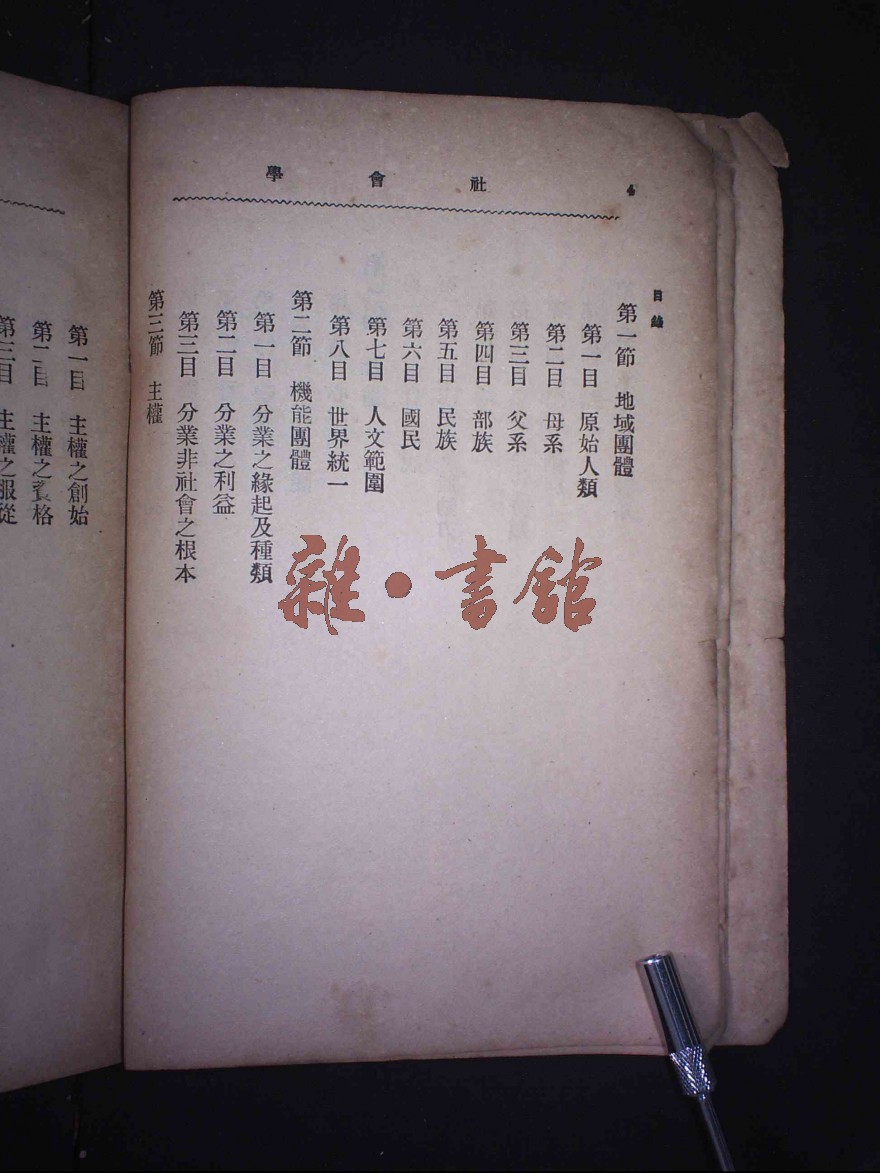 社會學
4
目錄
第一節　地域團體
第一目　原始人類
第二目　母系
第三目　父系
第四目　部族
第五目　民族
第六目　國民
第七目　人文範圍
第八目　世界統一
第二節　機能團體
第一目　分業之緣起及種類
第二目　分業之利益
第三目　分業非社會之根本
第三節　主權
第一目　主權之創始
第二目　主權之資格
第三目　主權之服從
雜·書館